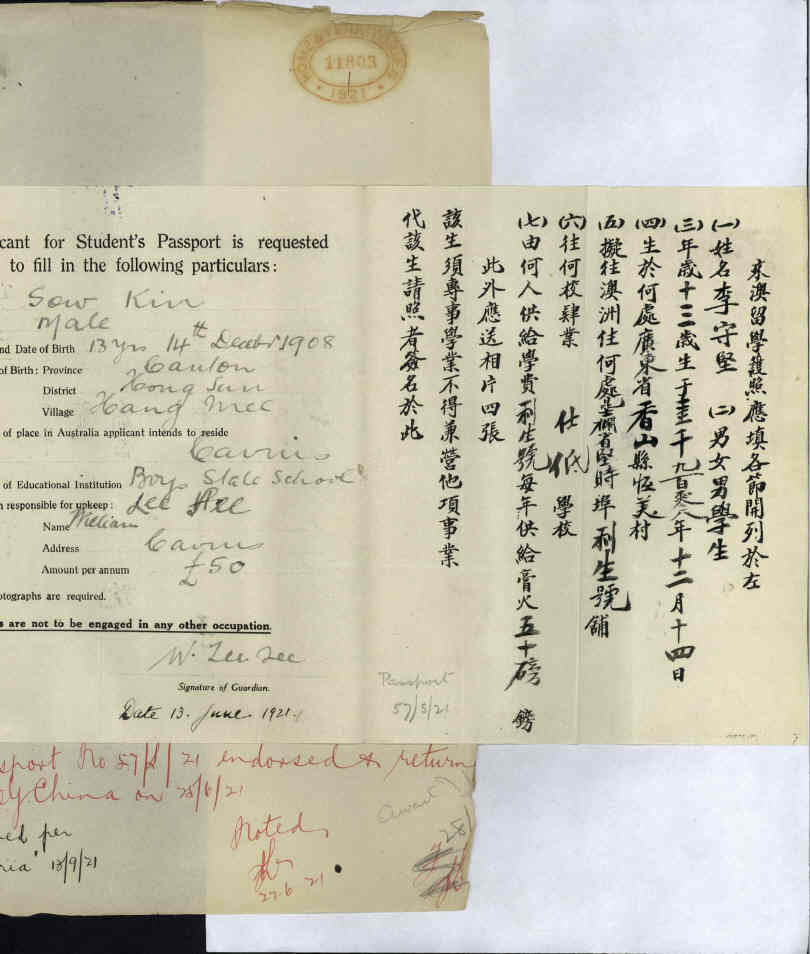 11803
1921
cant for Student's Passport is requested
to fill in the following particulars:
Sow Kin
Male
nd Date of Birth 13 yrs 14th Decbr 1908
of Birth: Province Canton
District Hong Sun
Village Hang Mee
of place in Australia applicant intends to reside
Cairns
of Educational Institution Boys State School
n responsible for upkeep: Lee Hee
Name William
Address Cairns
Amount per annum £50
otographs are required.
s are not to be engaged in any other occupation.
W. Lee See
Signature of Guardian.
Date 13. June 1921
來澳留學護照應填各節開列於左
(一)姓名李守堅 (二)男女男學生
(三)年歲十三歲生于壹千九百零八年十二月十四日
(四)生於何處廣東省香山縣恆美村
(五)擬往澳洲住何處 省堅時埠利生號舖
(六)往何校肄業 仕低 學校
(七)由何人供給學費利生號每年供給膏火五十磅 鎊
此外應送相片四張
該生須專事學業不得兼營他項事業
代該生請照者簽名於此
Passport
57/S/21
sport No 57/S/21 endorsed & return
China on 28/6/21
ed per
ria" 13/9/21
Noted
27.6 21
await
28/